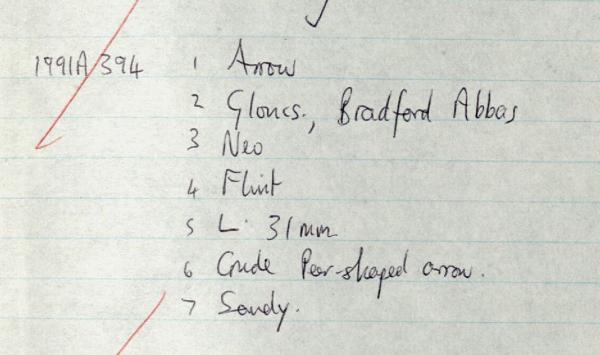 1991A 394 1 Arrow
2 Gloucs., Bradford Abbas
3 Neo
4 Flint
5 L. 31mm
6 Crude Pear-shaped arrow.
7 Sandy.